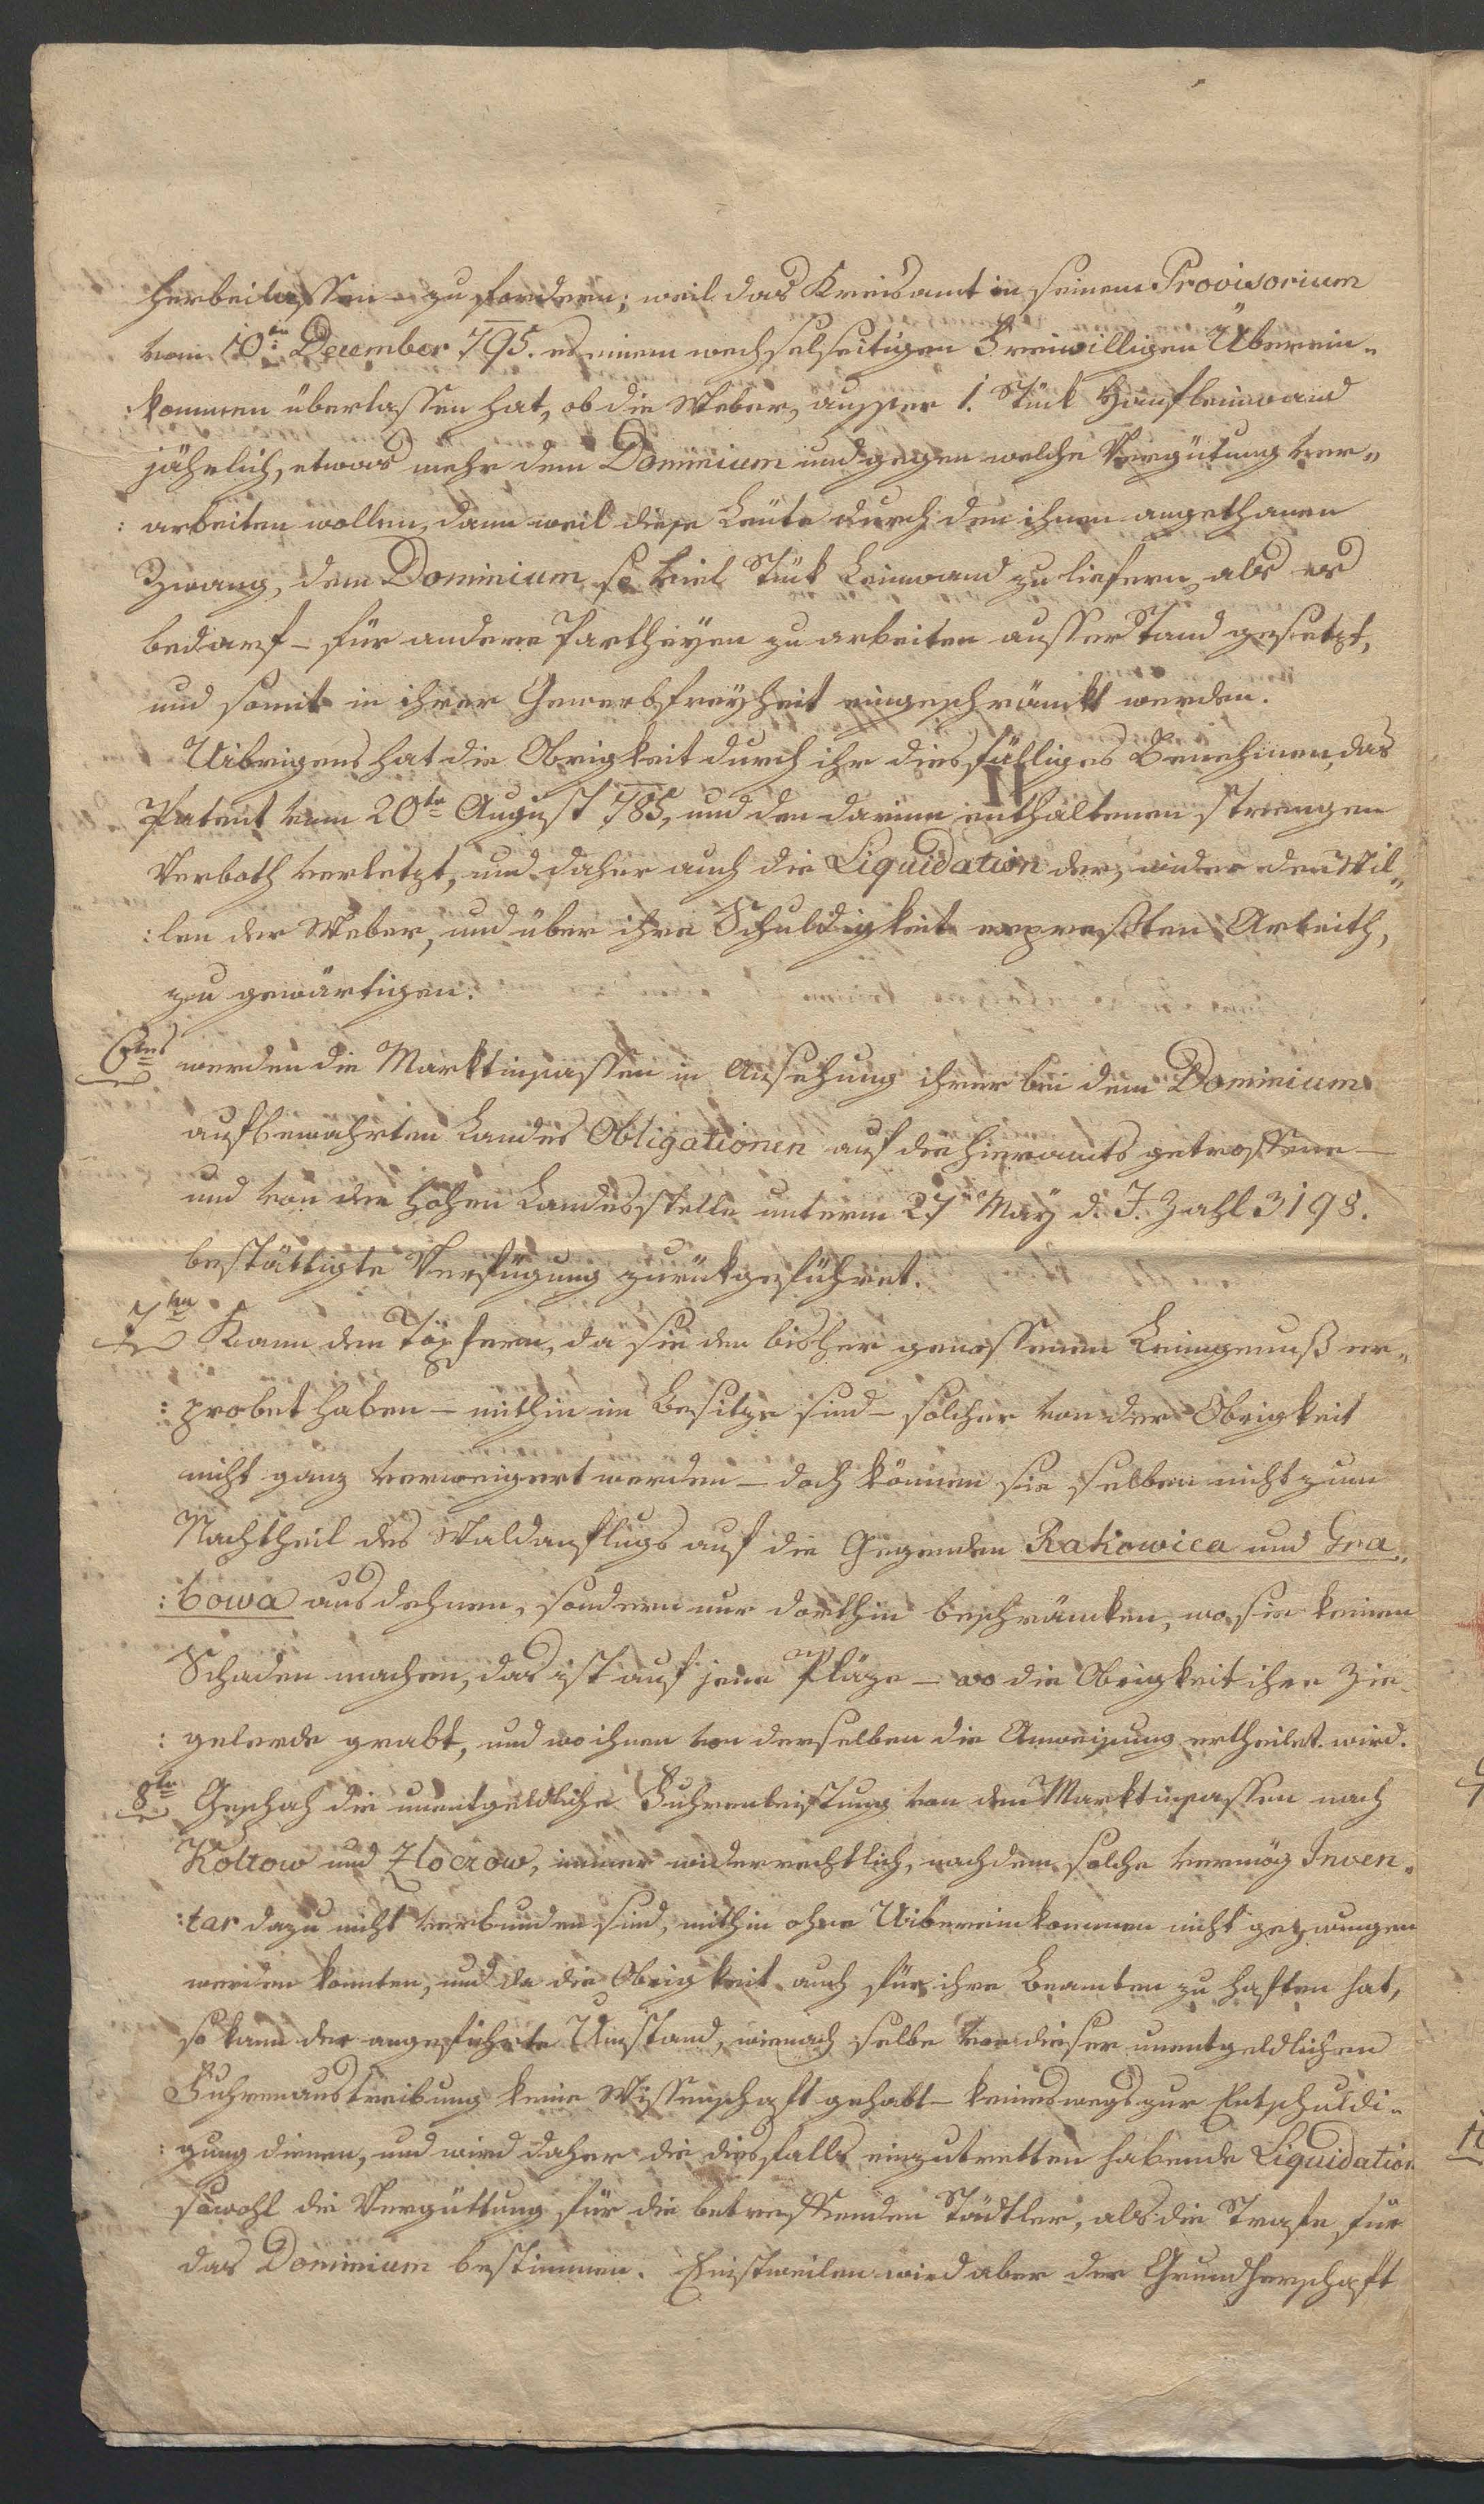 herbeilassen zu fordern; weil das Kreisamt in seinem Provisorium
vom 10ten December 795. es einem wechselseitigen Freiwilligen Überein„
:kommen überlassen hat, ob die Weber, ausser 1. Stück Hanfleinwand
jährlich, etwas mehr dem Dominium und gegen welche Vergütung ver„
:arbeiten wollen, dann weil diese Leute durch den ihnen angethanen
Zwang, dem Dominium so viel Stück Leinwand zu liefern, als es
bedarf – für andere Partheyen zu arbeiten ausser Stand gesetzt,
und somit in ihrer Gewerbsfreyheit eingeschränkt werden.
Uibrigens hat die Obrigkeit durch ihr diesfälliges Benehmen, das
Patent vom 20ten August 785, und den darinn enthaltenen strengen
Verboth verletzt, und daher auch die Liquidation der, wider den Wil„
:len der Weber, und über ihre Schuldigkeit erpreßten Arbeith,
zu gewärtigen.
6tens werden die Marktinsassen in Ansehung ihrer bei dem Dominium
aufbewahrten Landes Obligationen auf die hieramts getroffene –
und von der hohen Landesstelle unterm 27 May d. J. Zahl 3198.
bestättigte Verfügung zurükgeführet.
7ten Kann den Töpfern, da sie den bisher genossenen Leimgenuß er„
:probet haben – mithin im Besitze sind – solcher von der Obrigkeit
nicht ganz verweigert werden – doch können sie selben nicht zum
Nachtheil des Waldanflugs auf die Gegenden Rakowica und Gra„
:bowa ausdehnen, sondern nur dorthin beschränken, wo sie keinen
Schaden machen, das ist auf jene Pläze – wo die Obrigkeit ihre Zie„
:gelerde grabt, und wo ihnen von derselben die Anweisung ertheilet wird.
8ten Geschah die unentgeldliche Fuhrenleistung von den Marktinsassen nach
Koltow und Zloczow, immer widerrechtlich, nachdem solche vermög Inven„
:tar dazu nicht verbunden sind, mithin ohne Uibereinkommen nicht gezwungen
werden konnten, und da die Obrigkeit auch für ihre Beamten zu haften hat,
so kann der angeführte Umstand, wienach selbe von dieser unentgeldlichen
Fuhrenaustreibung keine Wissenschaft gehabt – keineswegs zur Entschuldi„
:gung dienen, und wird daher die diesfalls einzutretten habende Liquidation
sowohl die Vergüttung für die betreffenden Städtler, als die Strafe für
das Dominium bestimmen. Einstweilen wird aber der Grundherschaft